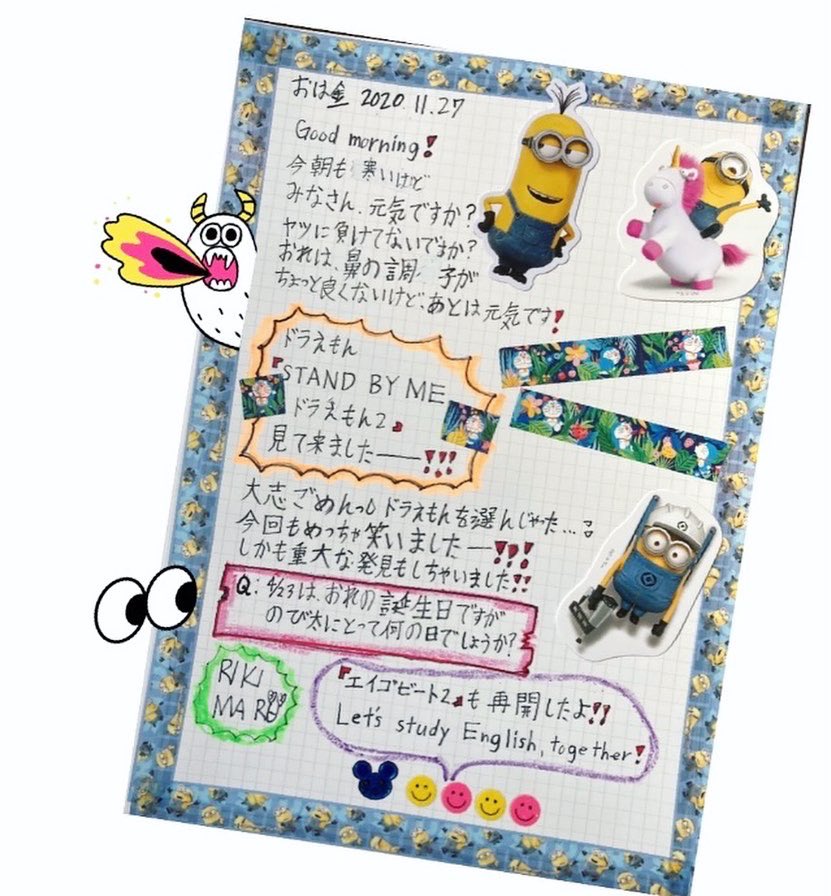 おは金 2020.11.27
Good morning!
今朝も寒いけど
みなさん、元気ですか?
ヤツに負けてないですか?
おれは、鼻の調子が
ちょっと良くないけど、あとは元気です!
ドラえもん
『STAND BY ME
ドラえもん2』
見て来ました――!!!
大志ごめんっ ドラえもんを選んじゃった...
今回もめっちゃ笑いました―!!!
しかも重大な発見もしちゃいました!!
Q: 4/23は、おれの誕生日ですが
のび太にとって何の日でしょうか?
RIKI
MARU
『エイゴビート2』も再開したよ!!
Let's study English, together!